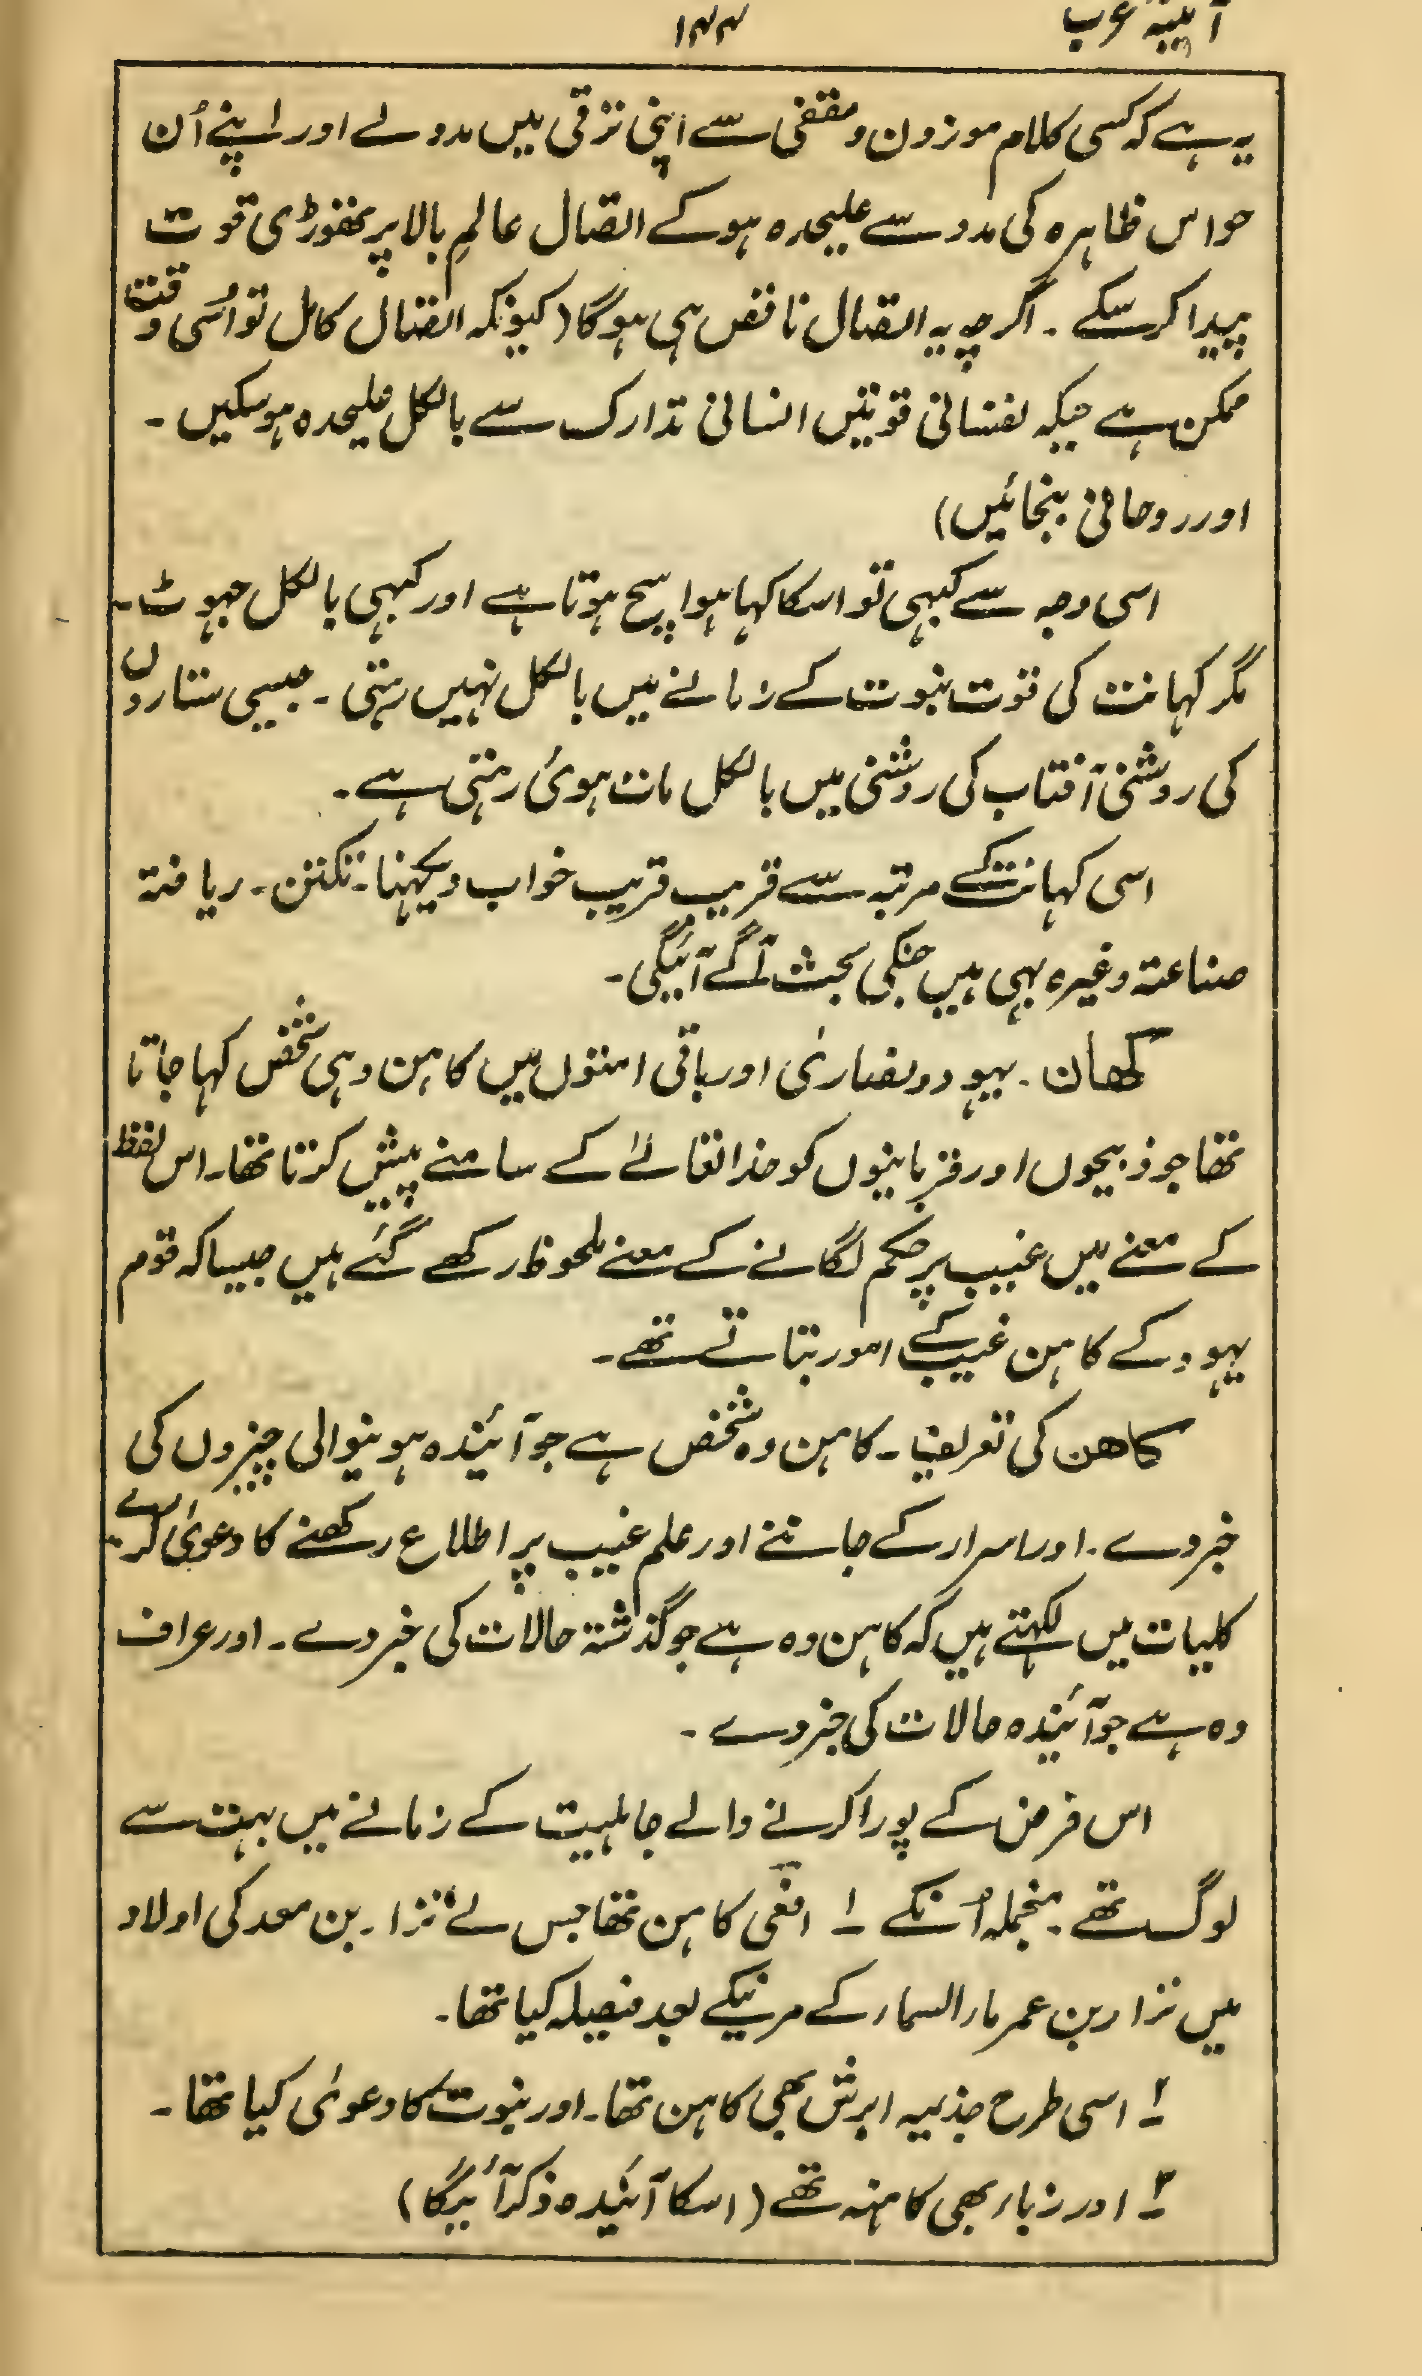 آئینۂ عرب
۱۴۴
یہ ہے کہ کسی کلام موزون و مقفی سے اپنی ترقی میں مدد لے اور اپنے اُن
حواس ظاہرہ کی مدد سے علیحدہ ہو کے اتصال عالمِ بالا پر تھوڑی قوت
پیدا کر سکے ۔ اگرچہ یہ اتصال ناقص ہی ہوگا (کیونکہ اتصال کامل تو اُسی وقت
ممکن ہے جبکہ نفسانی قوتیں انسانی تدارک سے بالکل علیحدہ ہو سکیں ۔
اور روحانی بنجائیں)
اسی وجہ سے کبہی تو اسکا کہا ہوا سچ ہوتا ہے اور کبہی بالکل جہوٹ ۔
مگر کہانت کی قوت نبوت کے زمانے میں بالکل نہیں رہتی ۔ جیسی ستاروں
کی روشنی آفتاب کی روشنی میں بالکل مات ہوئی رہتی ہے ۔
اسی کہانت کے مرتبہ سے قریب قریب خواب دیکہنا ۔ تکہن ۔ ریافتہ
صناعتہ وغیرہ بہی ہیں جنکی بحث آگے آئیگی ۔
کھان ۔ یہود و نصاریٰ اور باقی امتوں میں کاہن وہی شخص کہا جاتا
تھا جو ذبیحوں اور قربانیوں کو خدا تعالےٰ کے سامنے پیش کرتا تھا ۔ اس لفظ
کے معنے میں غیب پر حکم لگانے کے معنے ملحوظ رکھے گئے ہیں جیسا کہ قوم
یہود کے کاہن غیب کے امور بتاتے تھے ۔
کاھن کی تعریف ۔ کاہن وہ شخص ہے جو آئیندہ ہونیوالی چیزوں کی
خبر دے ۔ اور اسرار کے جاننے اور علم غیب پر اطلاع رکھنے کا دعویٰ کرے ۔
کلیات میں لکہتے ہیں کہ کاہن وہ ہے جو گذشتہ حالات کی خبر دے ۔ اور عراف
وہ ہے جو آئیندہ حالات کی خبر دے ۔
اس فرض کے پورا کرنے والے جاہلیت کے زمانے میں بہت سے
لوگ تھے ۔ منجملہ اُنکے ۱ افعی کاہن تھا جس نے نزار بن معد کی اولاد
میں نزار بن عمر ماء السماء کے مرنیکے بعد فیصلہ کیا تھا ۔
۲ اسی طرح جذیمہ ابرش بھی کاہن تھا ۔ اور نبوت کا دعویٰ کیا تھا ۔
۳ اور زباء بھی کاہنہ تھے (اسکا آئیندہ ذکر آئیگا)